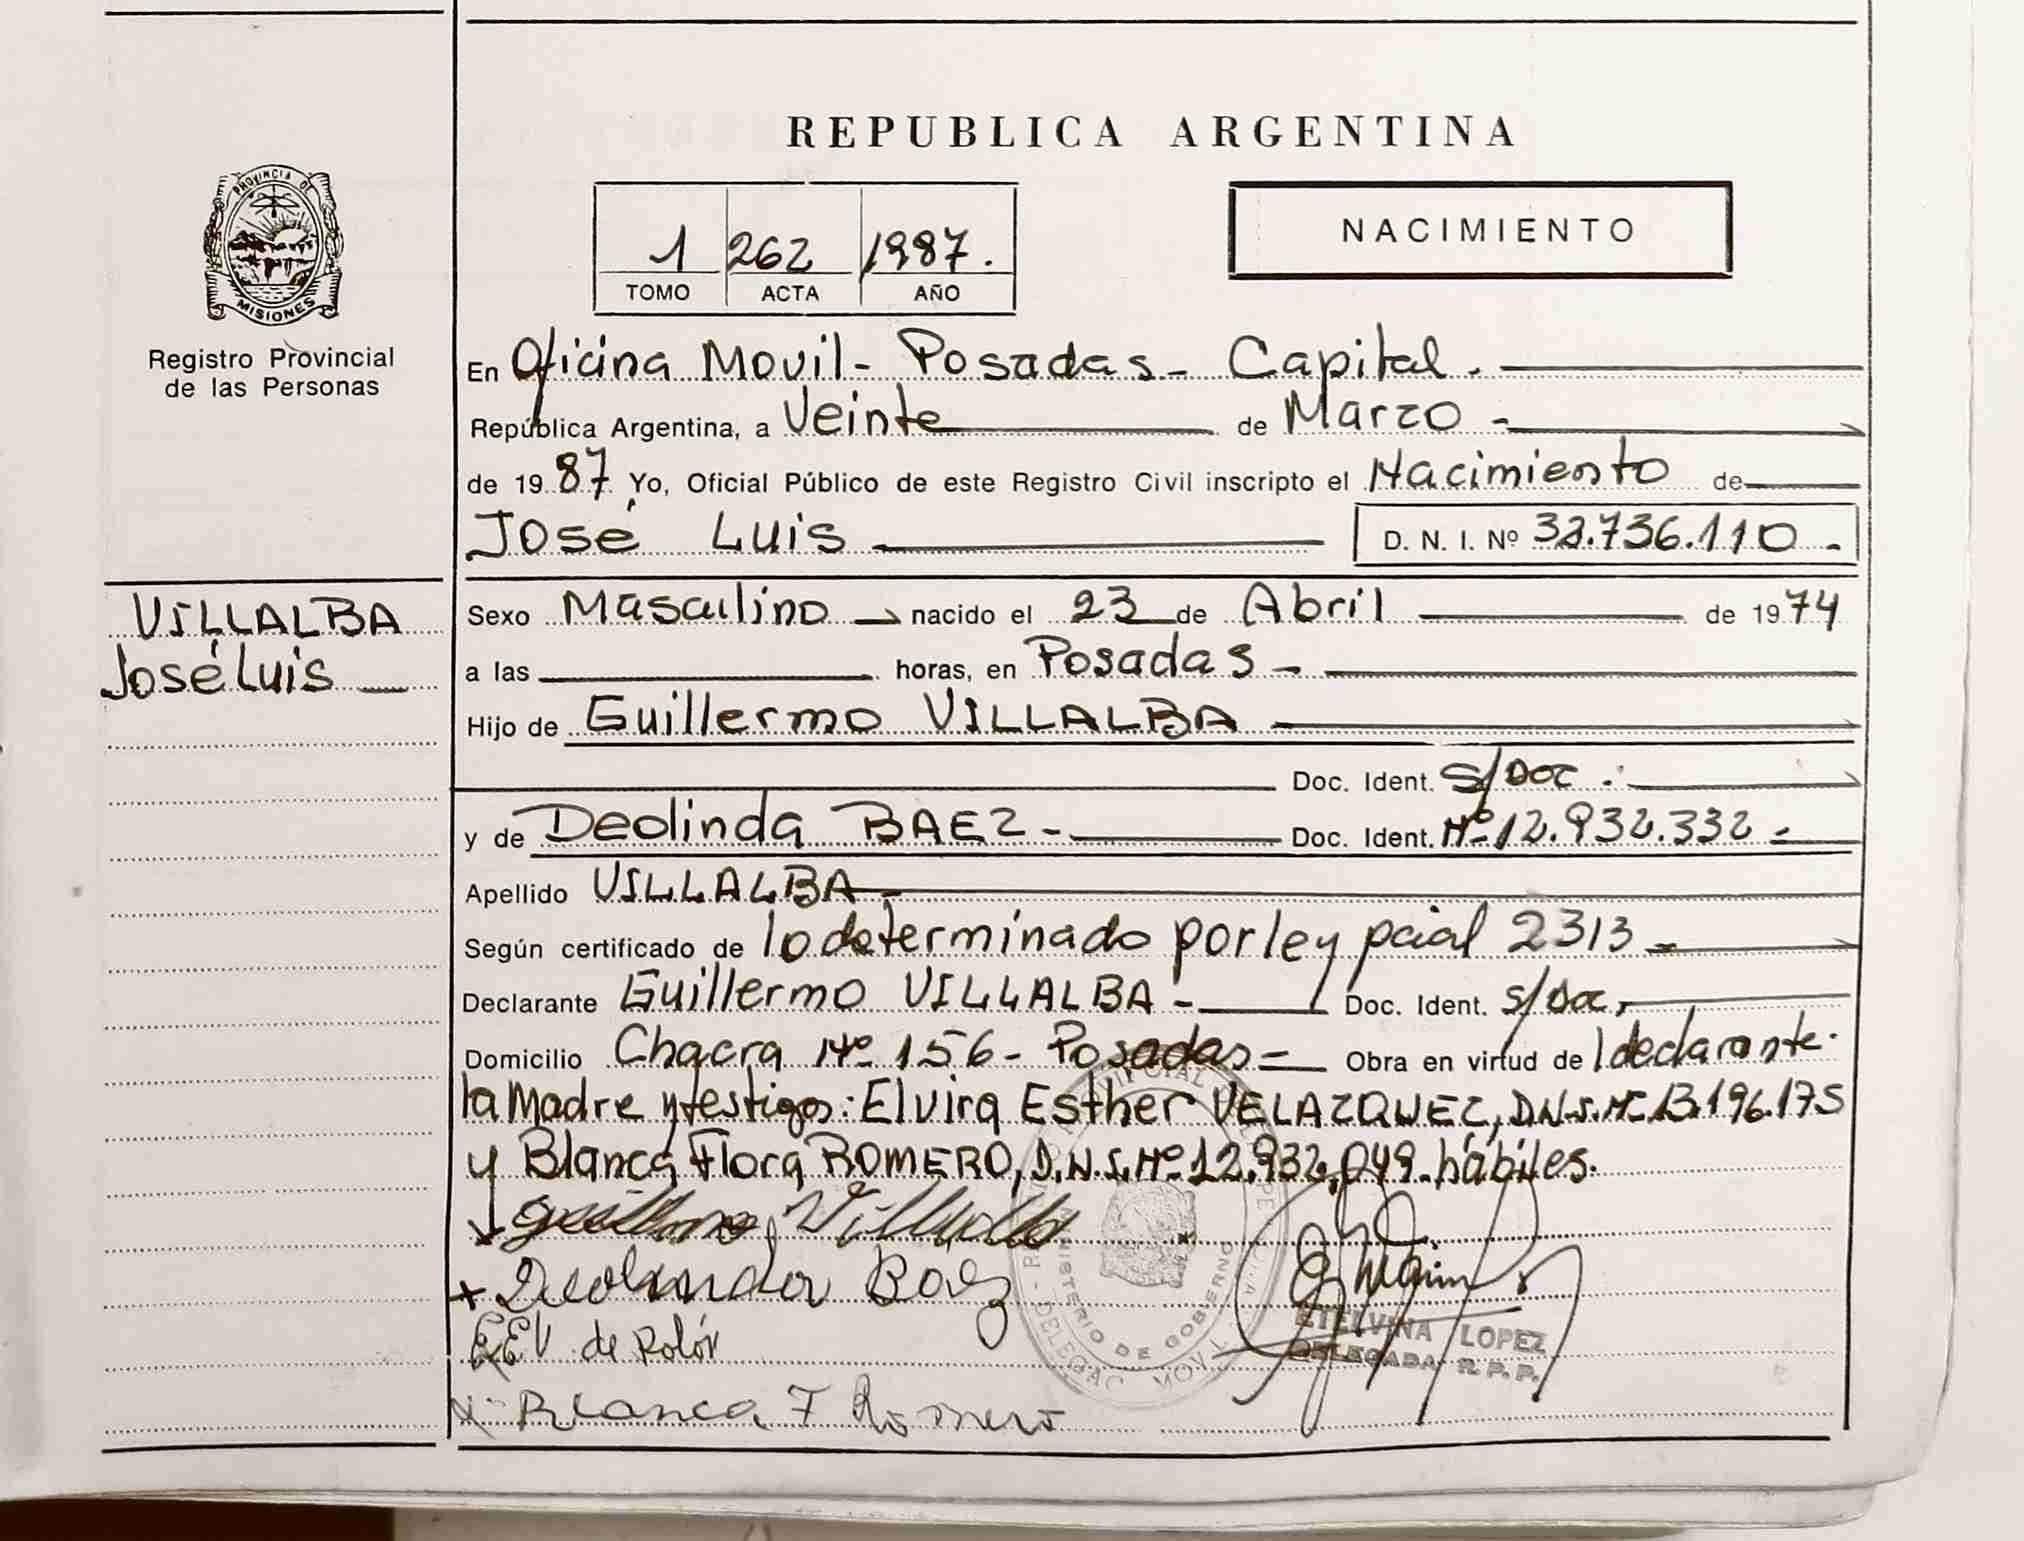 REPUBLICA ARGENTINA
PROVINCIA DE
MISIONES
Registro Provincial
de las Personas
1 262 1987.
TOMO ACTA AÑO
NACIMIENTO
En Oficina Movil - Posadas - Capital.
República Argentina, a Veinte de Marzo -
de 1987 Yo, Oficial Público de este Registro Civil inscripto el Nacimiento de
José Luis D. N. I. Nº 33.736.110 -
VILLALBA
José Luis
Sexo Masculino nacido el 23 de Abril de 1974
a las horas, en Posadas -
Hijo de Guillermo VILLALBA
Doc. Ident. S/Doc.
y de Deolinda BAEZ - Doc. Ident. Nº 12.932.332 -
Apellido VILLALBA -
Según certificado de lo determinado por ley pcial 2313 -
Declarante Guillermo VILLALBA - Doc. Ident. S/Doc,
Domicilio Chacra Nº 156 - Posadas = Obra en virtud de l declarante.
la Madre y testigos: Elvira Esther VELAZQUEZ, D.N.I. Nº 13.196.175
y Blanca Flora ROMERO, D.N.I. Nº 12.932.049. hábiles.
Guillermo Villalba
Deolinda Baez
EEV de Rolón
Blanca F Romero
MINISTERIO DE GOBIERNO
DELEGAC MOVIL
ETELVINA LOPEZ
DELEGADA R. P. P.